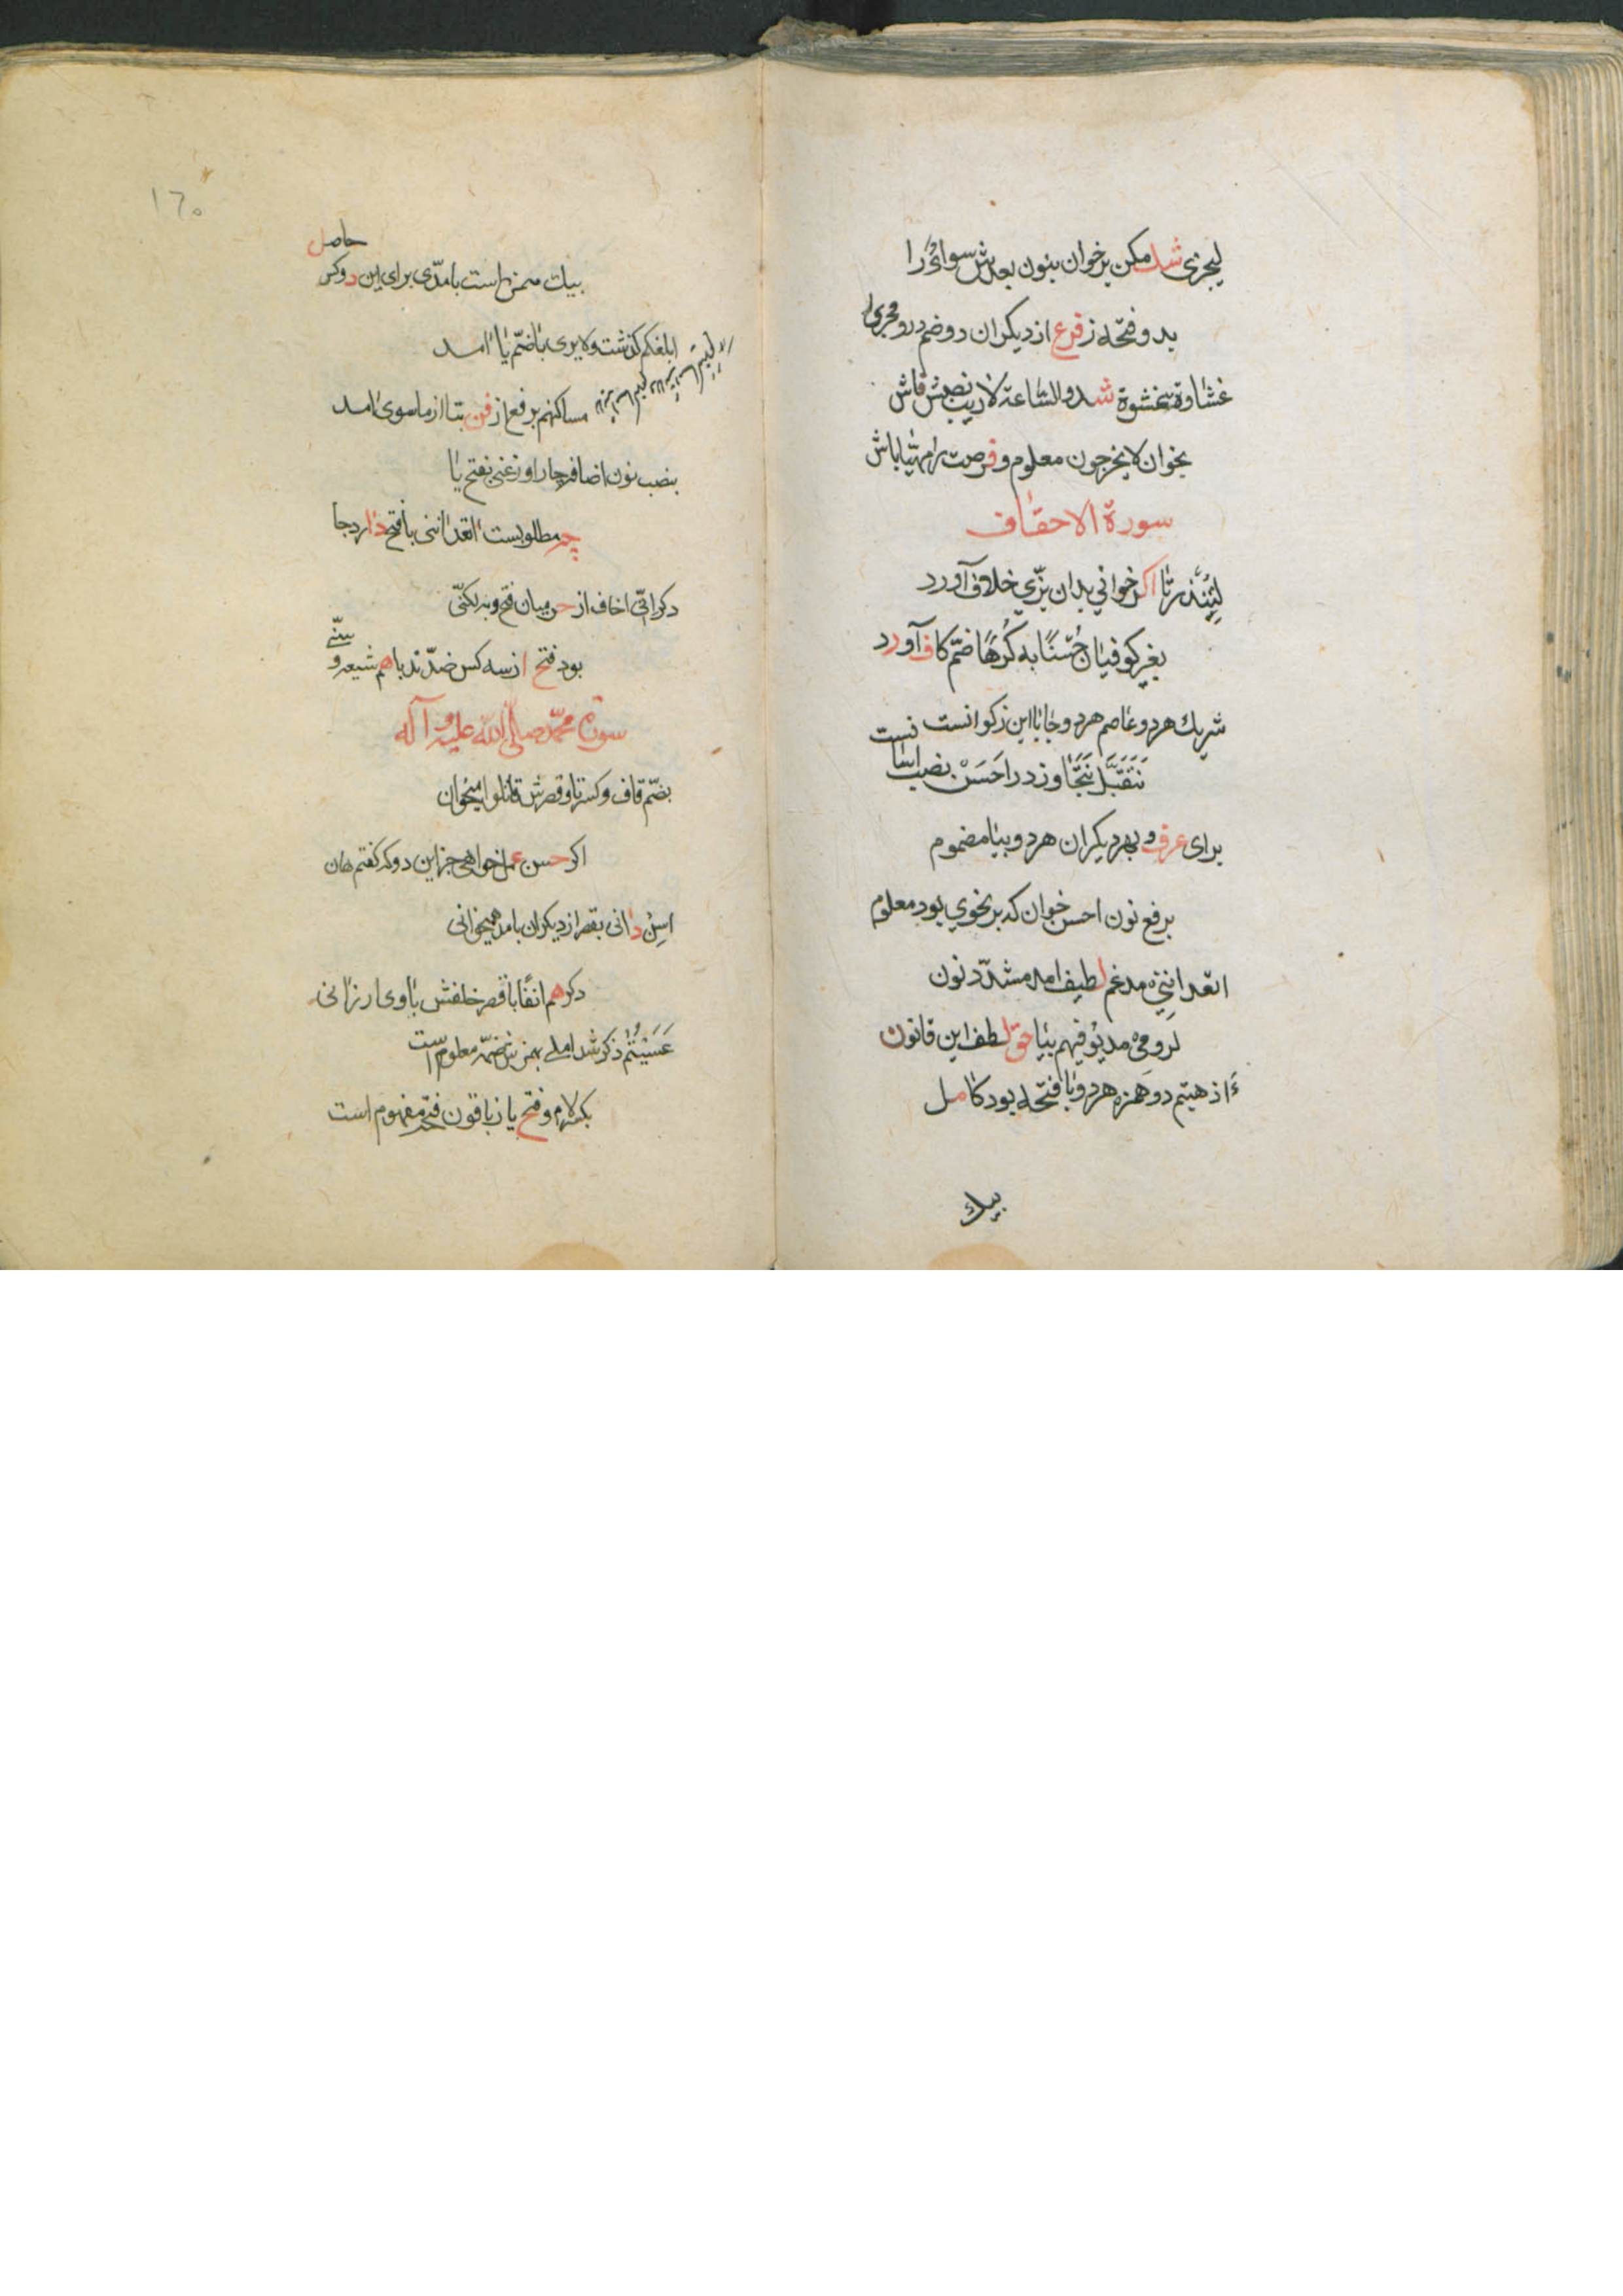 لیجزی شد مکن بر خوان بنون بعدش سوائً را
بدو فتحه ز قرع از دیکران دو ضم درو مجری
غشاوة بغشوة شد والساعة لاریب نصبش فاش
بخوان لایخرجون معلوم و فرصت را مهیا باش
سورة الاحقاف
لیُنذر تا اکر خوانی بدان بزّی خلاف آورد
بغیر کوفیان حُسنًا به کُرهًا ضمّ کاف آورد
شریك هرد و عاصم هرد و جابا ابن ذکوانست
نَتَقَبَّل نَتَجَاوز در احسَنْ نصب
برای عرف و بهر دیکران هرد و بیا مضموم
برفع نون احسن خوان که بر نحوی بود معلوم
اتعداننی مدغم لطیف امد مشدّد نون
لیوفیهم بیا حق لطف این قانون
ءَاذهبتم دو همزه هرد و با فتحه بود کامل
بیك
١٦٥
حاصل
بیك همزه است با مدّی برای این دو کس
ابلغکم کذشت ولایری با ضمّ یا امد
مساکنهم برفع از فن بتا از ماسوی امد
بنصب نون اضافه چار اوزعنی بفتح یا
چه مطلوبست اتعداننی با فتح دارد جا
دکر انّی اخاف از حرمیان فتح و به لکنّی
بود فتح از سه کس ضدّند باهم شیعه و سنّی
سورة محمّد صلی الله علیه و آله
بضمّ قاف و کسر تا و قصرش قاتلوا میخوان
اکر حسن عمل خواهی جز این دو که کفتم هان
اسن دانی بقصر از دیکران با مد همیخوانی
دکر هم انفًا با قصر خلفش با وی ارزانی
عَسَیْتُمْ ذکر شد املی بهمزش ضمّه معلوم است
بکسر لام و فتح یا ز باقون فتحه مفهوم است